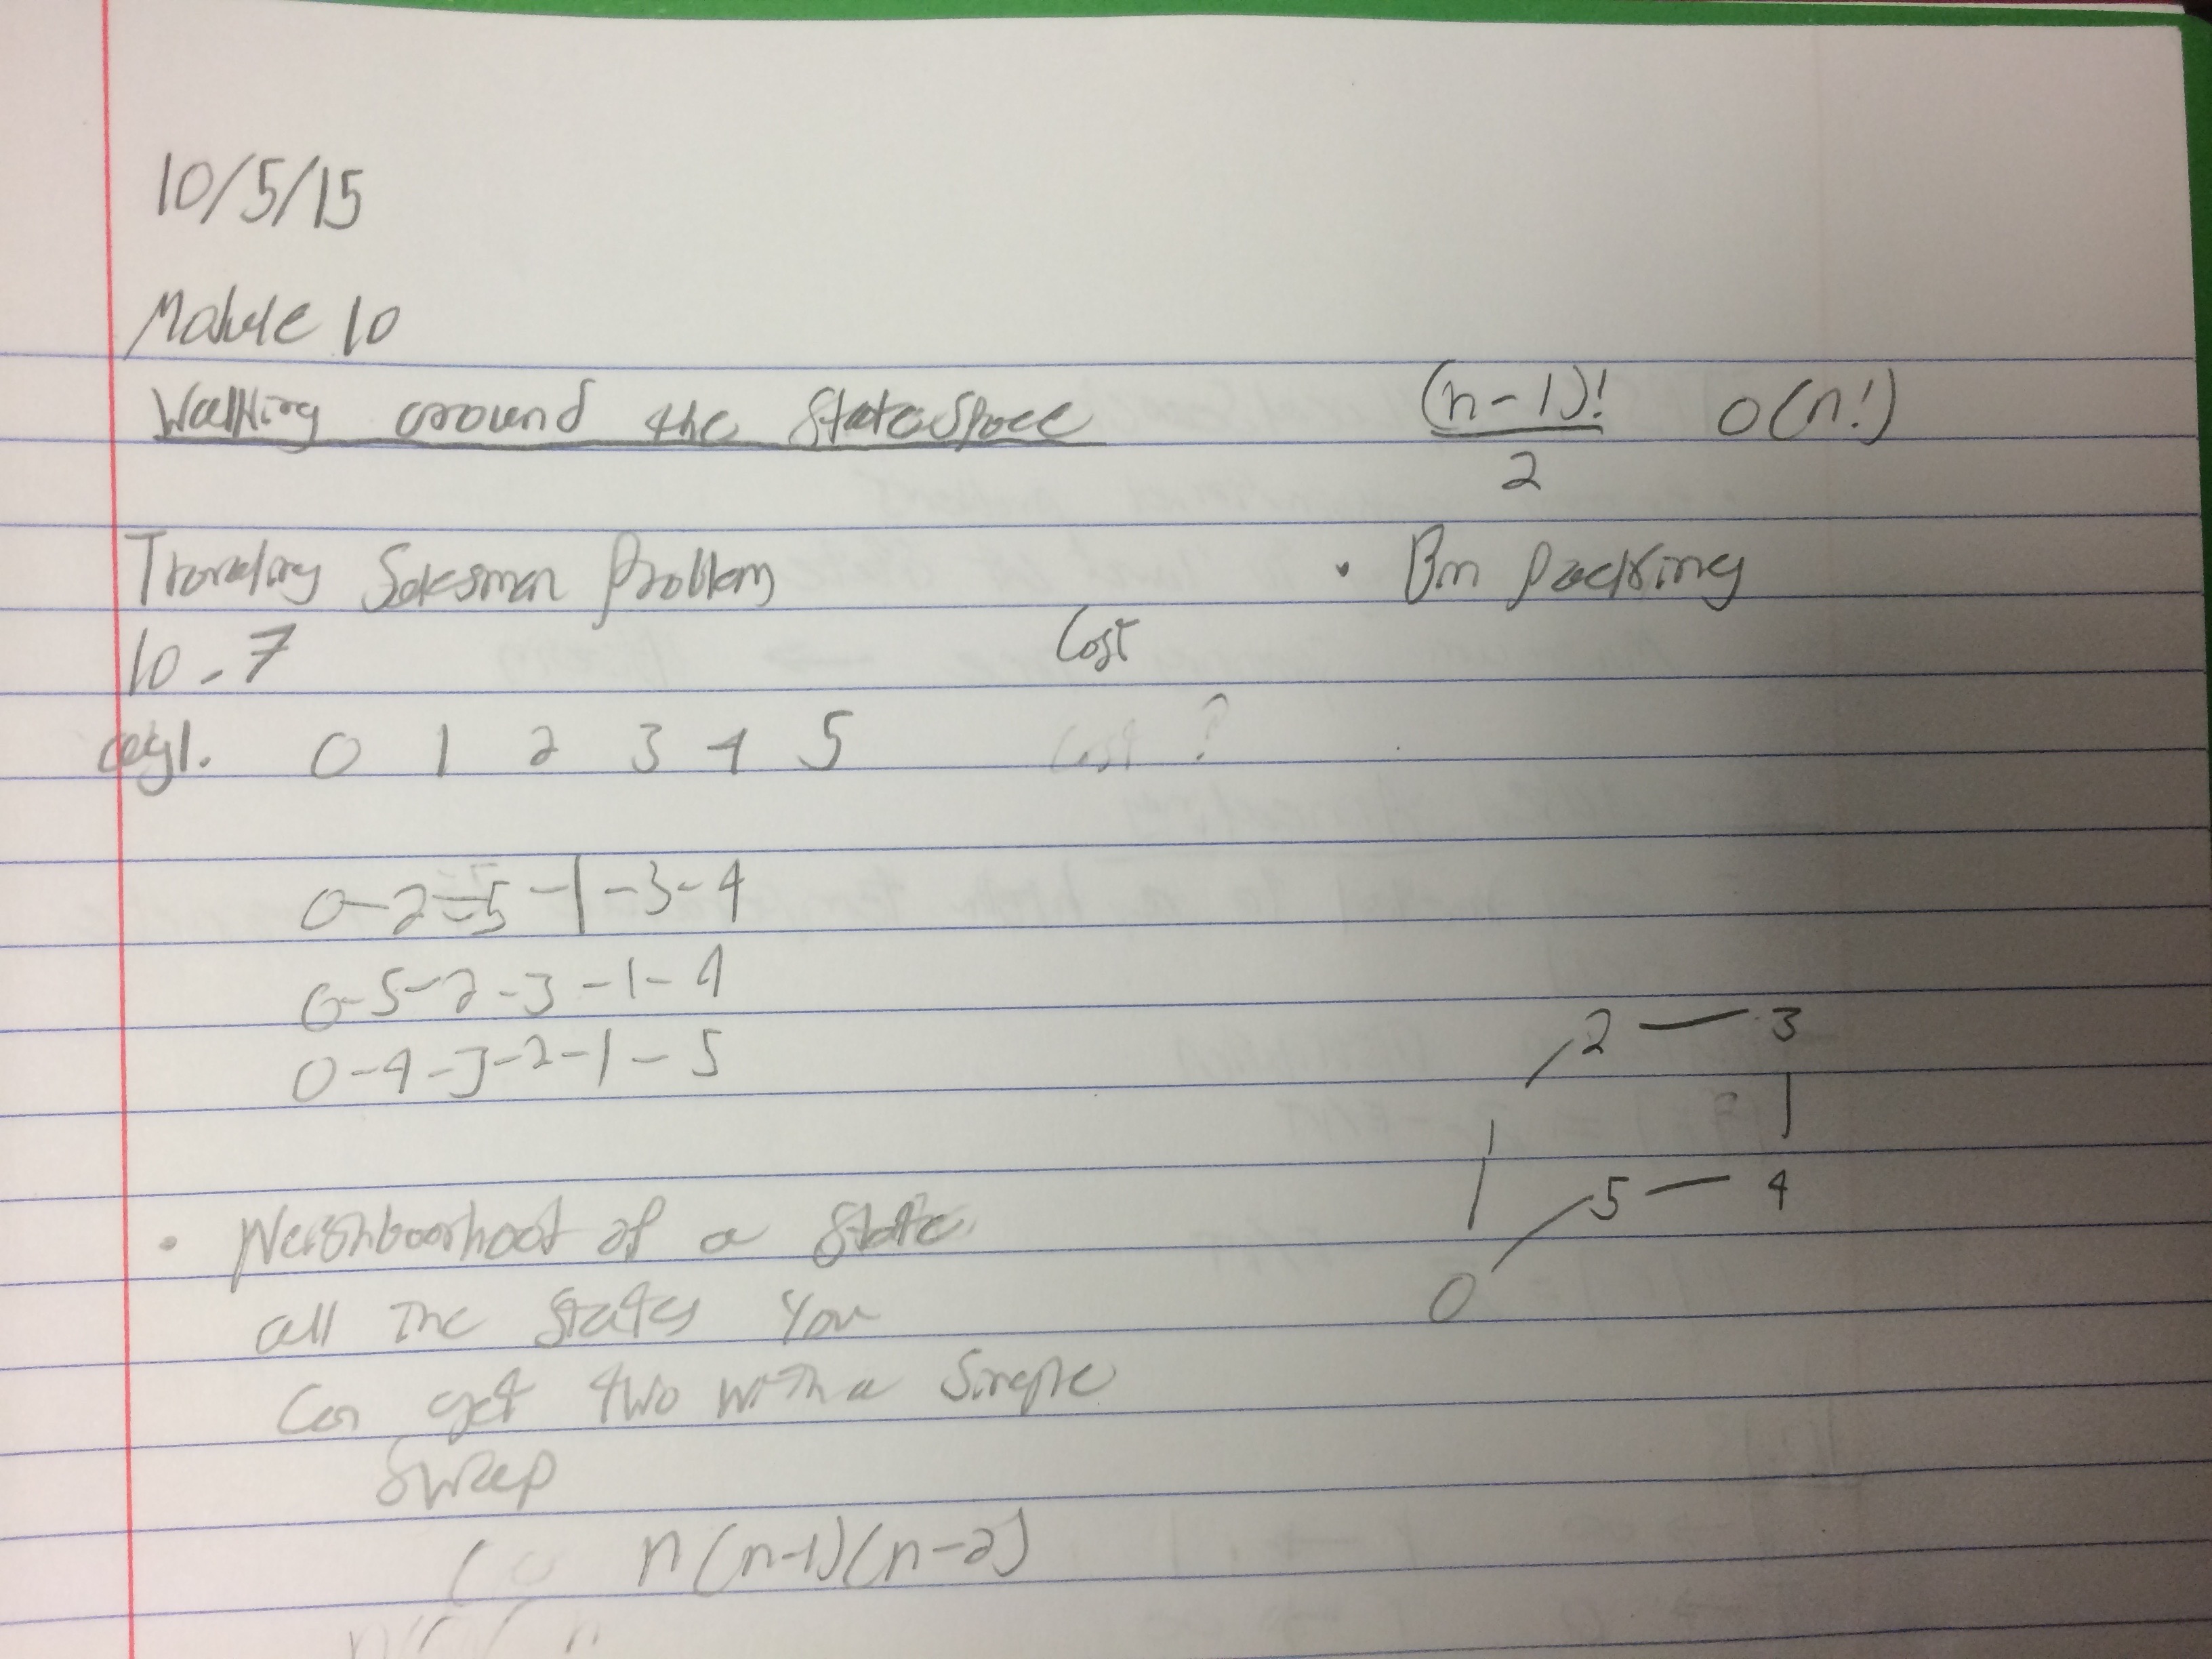 10/5/15
Module 10
Walking around the State Space
(n-1)!
2
O(n!)
Traveling Salesman Problem
• Bin packing
10-7
Cost
0 1 2 3 4 5
Cost ?
0-2-5-1-3-4
0-5-2-3-1-4
0-4-3-2-1-5
2 — 3
1
5 — 4
0
• Neighborhood of a State
all The States You
Can get two with a Simple
Swap
n(n-1)(n-2)